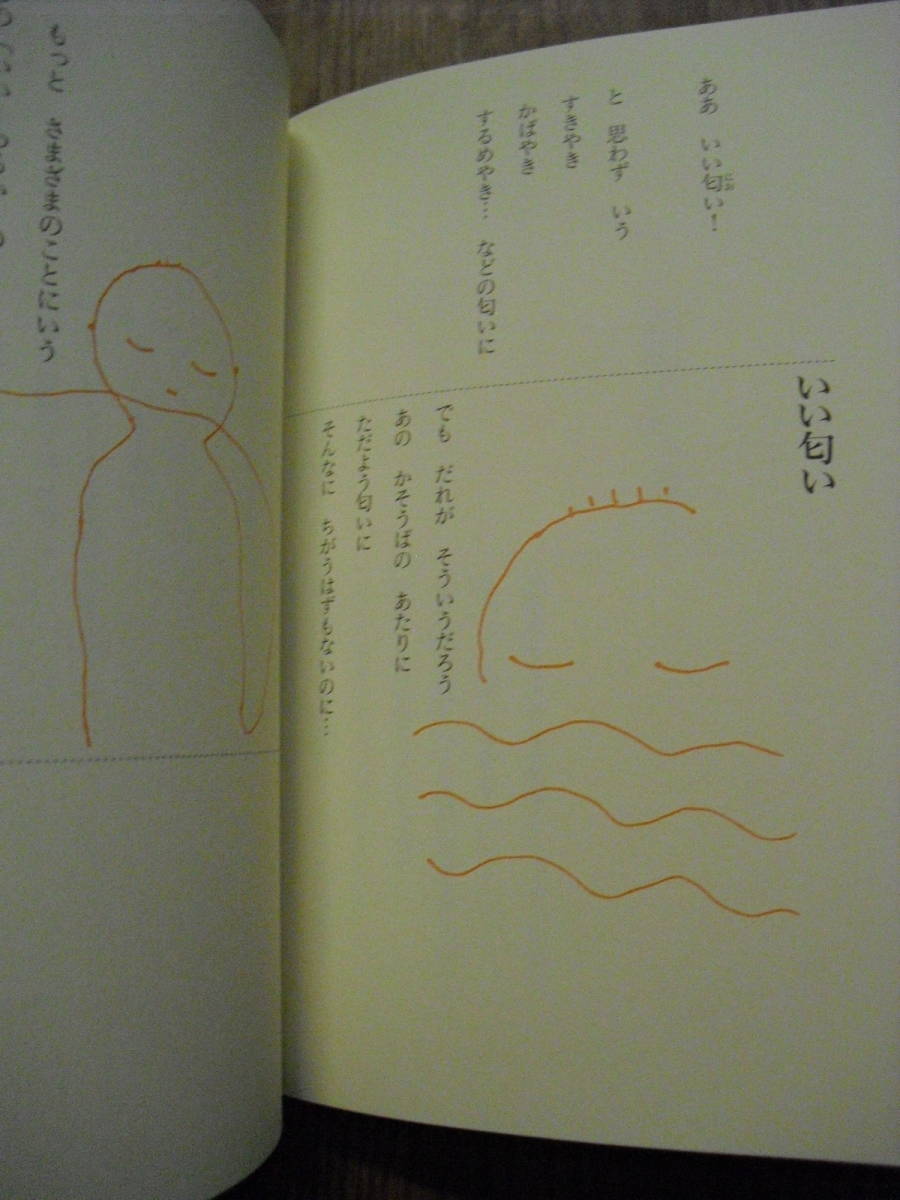 いい匂い
ああ　いい匂い！
にお
と　思わず　いう
すきやき
かばやき
するめやき…　などの匂いに
でも　だれが　そういうだろう
あの　かそうばの　あたりに
ただよう匂いに
そんなに　ちがうはずもないのに…
もっと　さまざまのことにいう